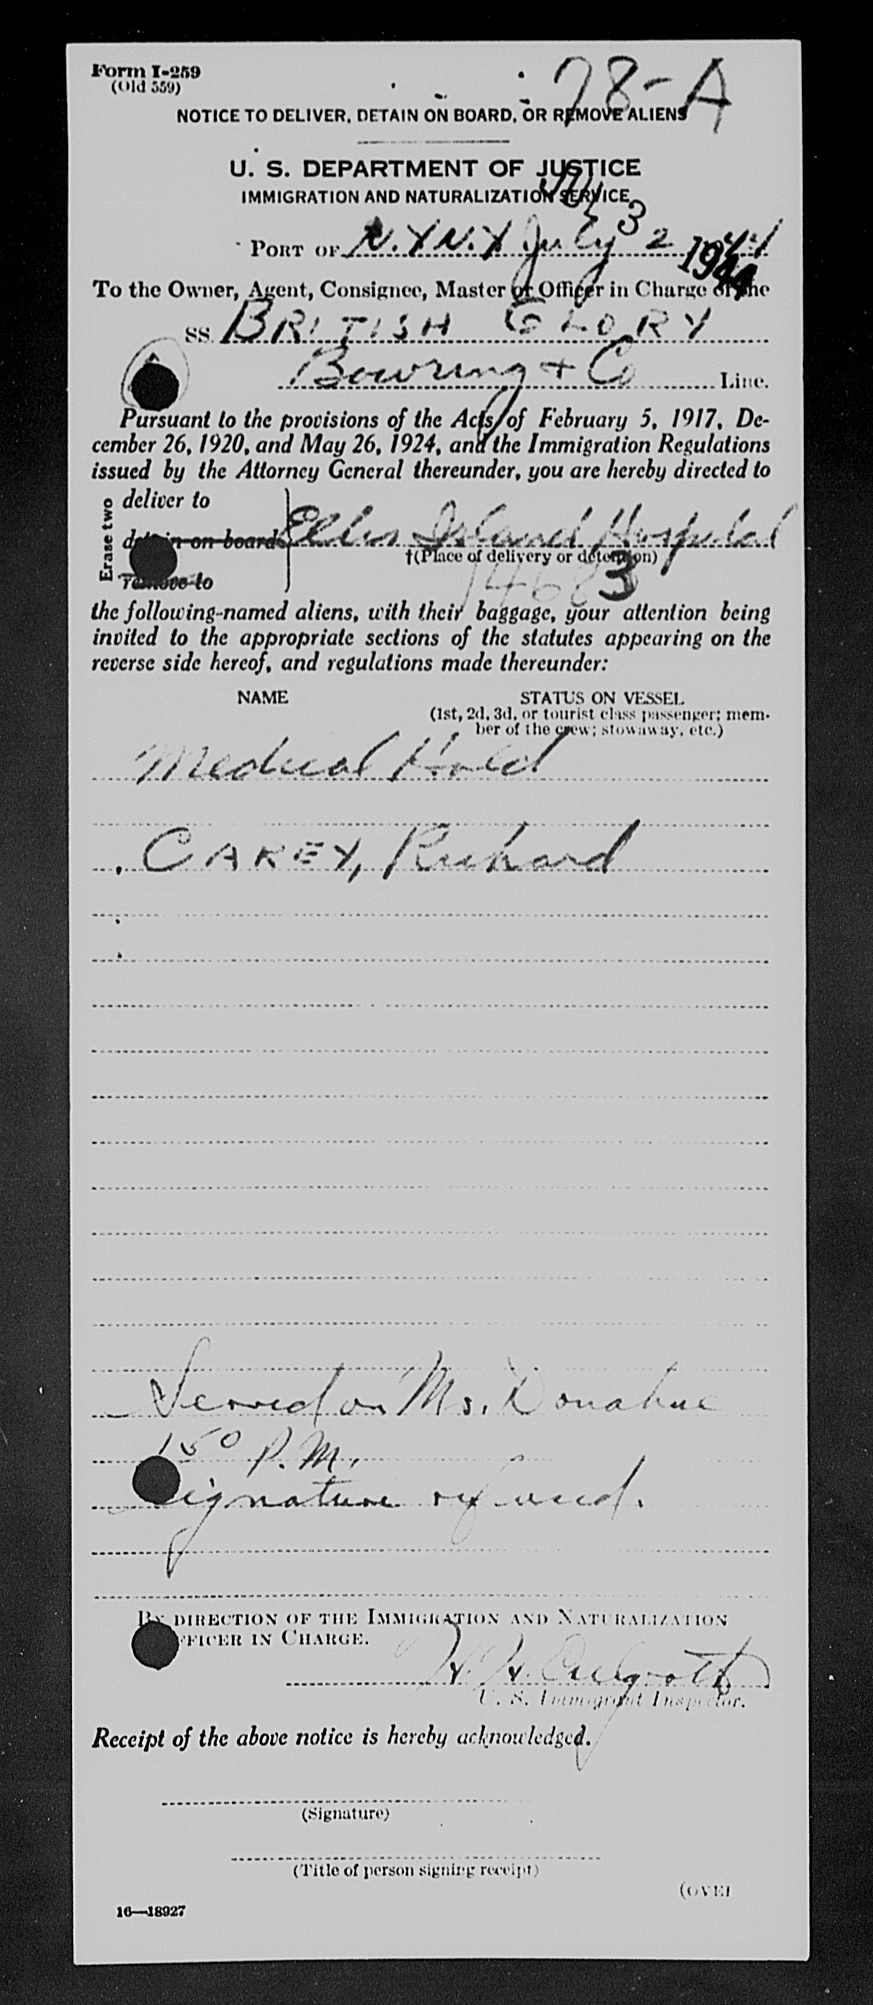 Form I-259
(Old 559)
78-A
NOTICE TO DELIVER, DETAIN ON BOARD, OR REMOVE ALIENS
U. S. DEPARTMENT OF JUSTICE
IMMIGRATION AND NATURALIZATION SERVICE
JUL 3 1944
PORT OF N.Y N.Y July 2 1944
To the Owner, Agent, Consignee, Master or Officer in Charge of the
SS. BRITISH GLORY
Bowring + Co Line.
Pursuant to the provisions of the Acts of February 5, 1917, De-
cember 26, 1920, and May 26, 1924, and the Immigration Regulations
issued by the Attorney General thereunder, you are hereby directed to
Erase two
deliver to
detain on board
remove to
Ellis Island Hospital
†(Place of delivery or detention)
14683
the following-named aliens, with their baggage, your attention being
invited to the appropriate sections of the statutes appearing on the
reverse side hereof, and regulations made thereunder:
NAME STATUS ON VESSEL
(1st, 2d, 3d, or tourist class passenger; mem-
ber of the crew; stowaway, etc.)
Medical Hold
CAREY, Richard
Served on Ms. Donahue
150 P.M.
Signature refused.
BY DIRECTION OF THE IMMIGRATION AND NATURALIZATION
OFFICER IN CHARGE.
H. H.
U. S. Immigrant Inspector.
Receipt of the above notice is hereby acknowledged.
(Signature)
(Title of person signing receipt)
(OVER
16—18927